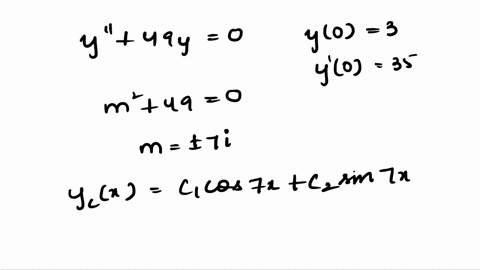 y'' + 49y = 0
y(0) = 3
y'(0) = 35
m² + 49 = 0
m = ±7i
y_c(x) = C₁ cos 7x + C₂ sin 7x